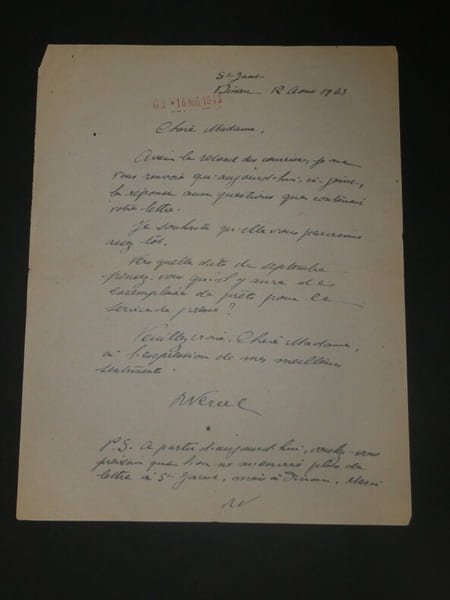 St Jacut
Dinan 12 Aout 1943
16 AOU 1943
Chère Madame,
Avec le retard des courriers, je ne
vous renvoie qu'aujourd'hui, ci-joint,
la réponse aux questions que contenait
votre lettre.
Je souhaite qu'elle vous parvienne
assez tôt.
Vers quelle date de septembre
pensez-vous qu'il y aura des
exemplaires de prêts pour le
service de presse ?
Veuillez croire, Chère Madame,
à l'expression de mes meilleurs
sentiments.
RVercel
P.S. A partir d'aujourd'hui, voulez-vous
prévoir que l'on ne m'envoie plus de
lettre à St Jacut, mais à Dinan. Merci
RV